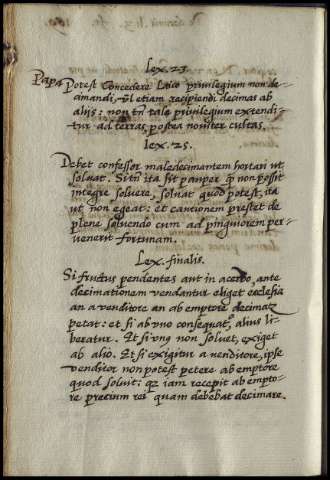 Lex. 23.
Papa Potest Concedere Laico privilegium non de-
cimandi, Vel etiam recipiendi decimas ab
alijs: non tñ tale privilegium extendi-
tur ad terras postea noviter cultas.
Lex. 25.
Debet confessor maledecimantem hortari ut
soluat. Si tñ ita sit pauper ꝙ non possit
integre soluere, soluat quod potest, ita
ut non egeat: et cautionem prestet de
plene soluendo cum ad pinguiorem per-
venerit fortunam.
Lex. finalis.
Si fructus pendentes aut in acerbo, ante
decimationem vendantur eliget ecclesia
an a venditore an ab emptore decimaz
petat: et si ab uno consequat᷑, alius li-
beratur. Et si vnus non soluet, exiget
ab alio. Et si exigitur a venditore, ipse
venditor non potest petere ab emptore
quod soluit: qz iam recepit ab empto-
re precium rei quam debebat decimare.